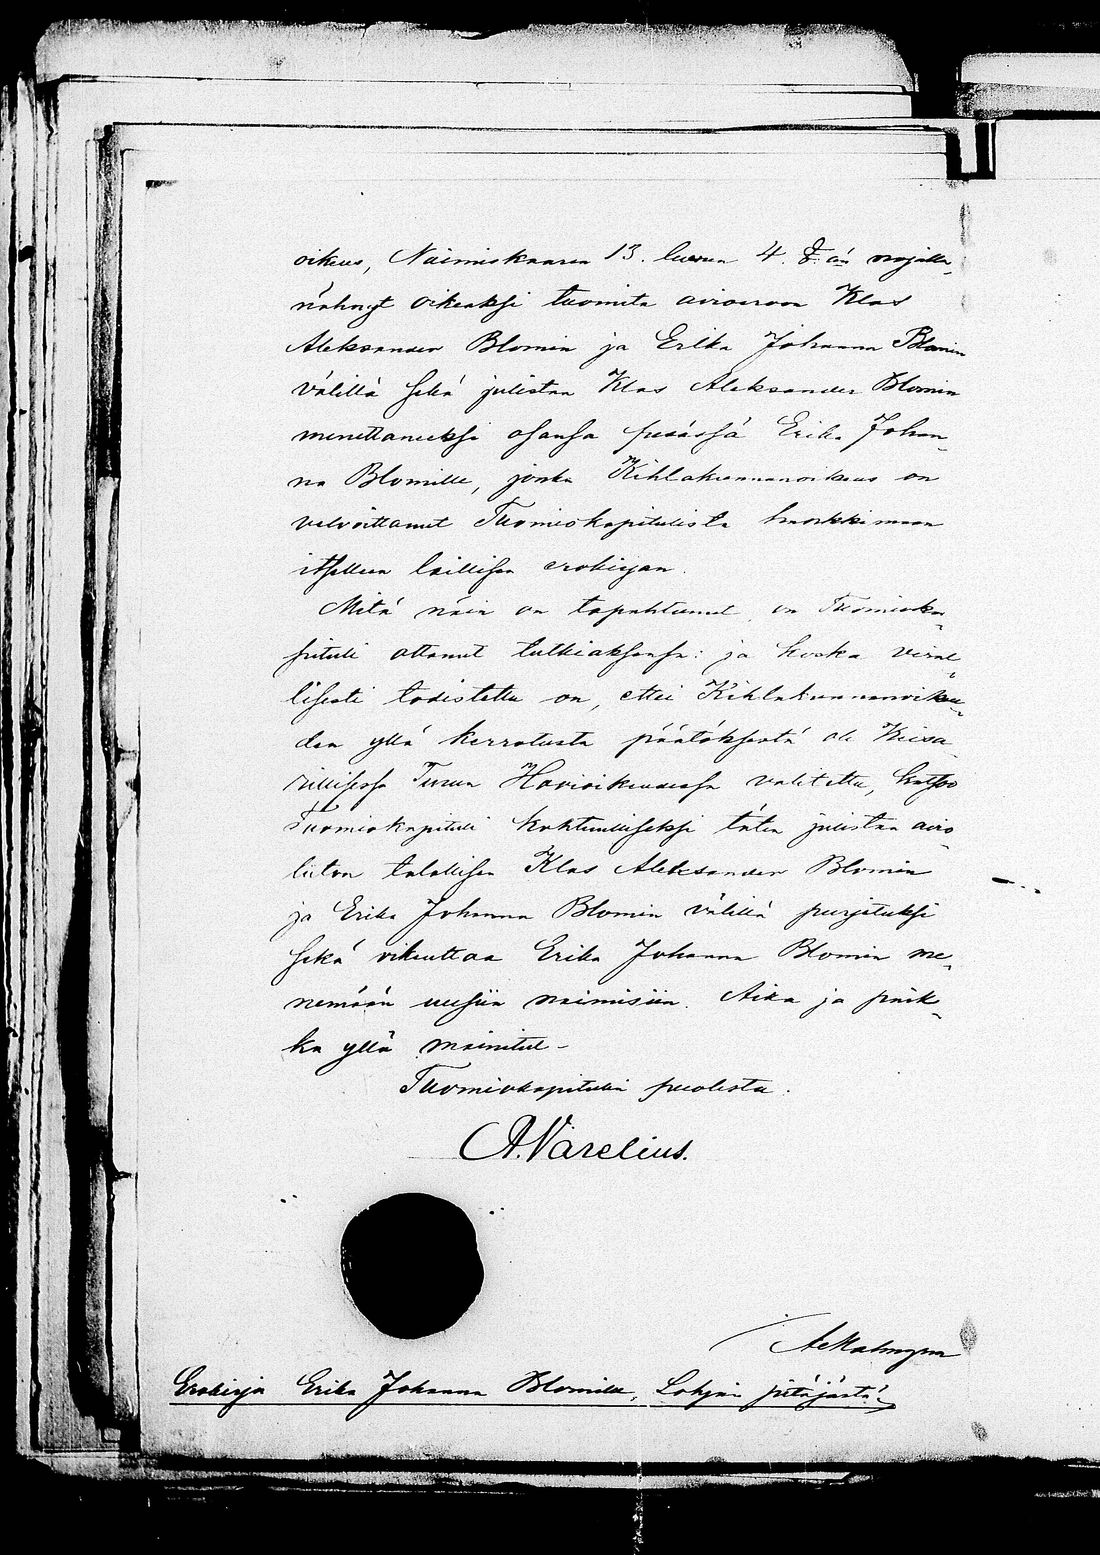 oikeus, Naimiskaaren 13. luvun 4. §:än nojalla,
nähnyt oikeaksi tuomita avioeroon Klas
Aleksander Blomin ja Erika Johanna Blomin
välillä sekä julistaa Klas Aleksander Blomin
menettäneeksi osansa pesässä Erika Johan-
na Blomille, jonka Kihlakunnanoikeus on
velvoittanut Tuomiokapitulista hankkimaan
itselleen laillisen erokirjan.
Mitä näin on tapahtunut, on Tuomioka-
pituli ottanut tutkiaksensa: ja koska viral-
lisesti todistettu on, ettei Kihlakunnanoikeu-
den yllä kerrotusta päätöksestä ole Keisa-
rillisessa Turun Hovioikeudessa valitettu, katsoo
Tuomiokapituli kohtuulliseksi täten julistaa avio-
liiton talollisen Klas Aleksander Blomin
ja Erika Johanna Blomin välillä puretuksi
sekä oikeuttaa Erika Johanna Blomin me-
nemään uusiin naimisiin. Aika ja paik-
ka yllä mainitut -
Tuomiokapitulin puolesta.
A. Varelius.
Erokirja Erika Johanna Blomille, Lohjan pitäjästä.